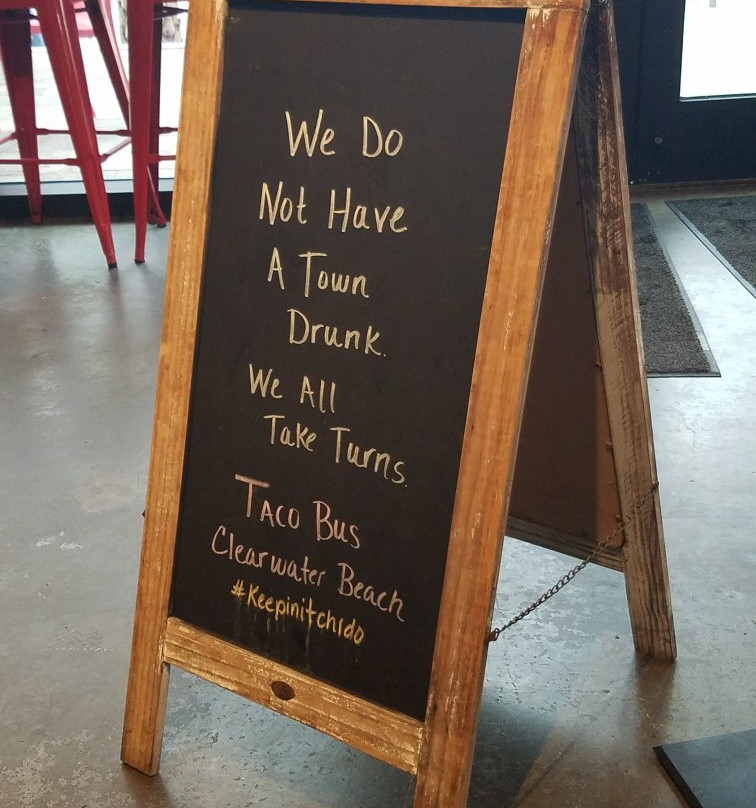 We Do
Not Have
A Town
Drunk.
We All
Take Turns.
Taco Bus
Clearwater Beach
#Keepinitchido